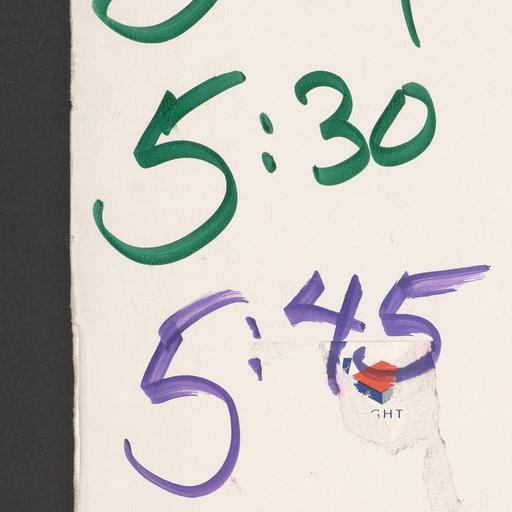 5:30
5:45
GHT